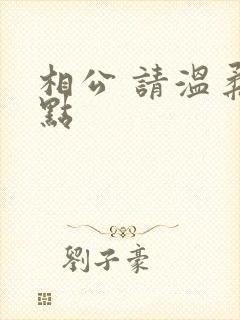 相公 請溫柔
點
劉子豪